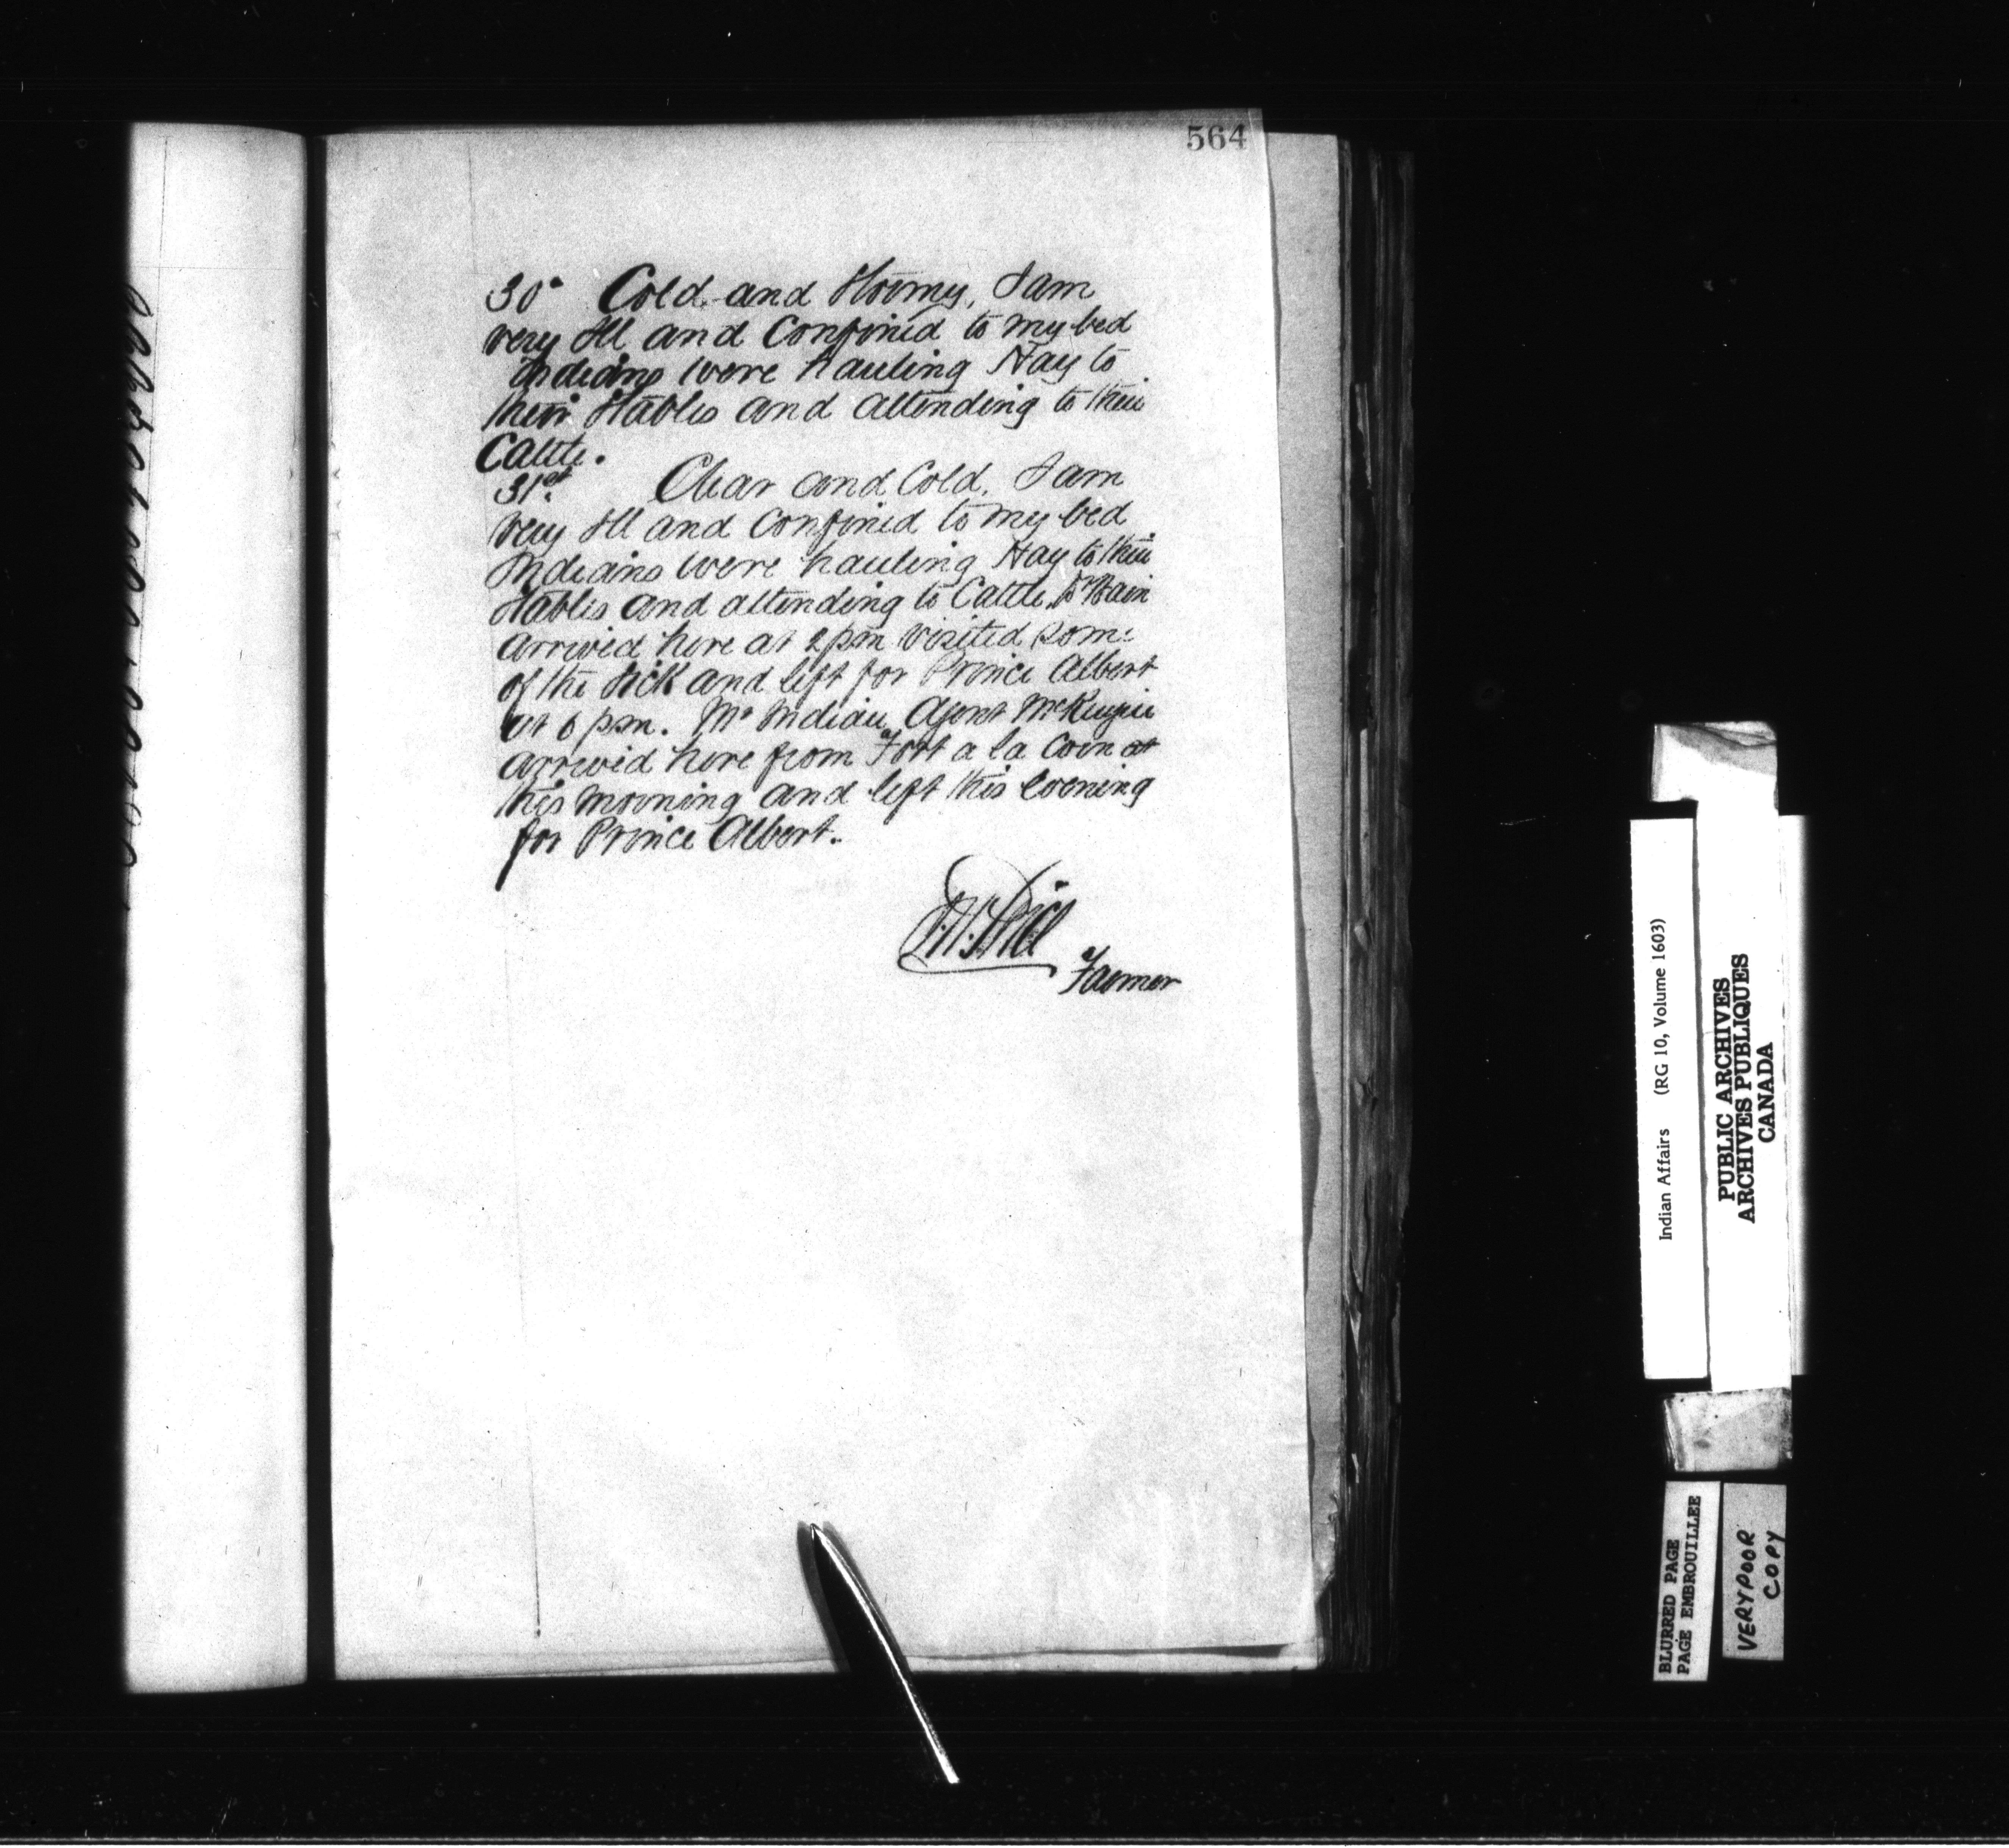 564
30" Cold and Stormy, I am
very Ill and Confined to my bed
Indians were hauling Hay to
their Stables and attending to their
Cattle.
31st. Clear and Cold. I am
very Ill and Confined to my bed
Indians were hauling Hay to their
Stables and attending to Cattle. Dr Bain
arrived here at 2 pm visited some
of the Sick and left for Prince Albert
at 6 pm. Mr Indian Agent McKenzie
arrived here from Fort a la Corn at
this morning and left this Evening
for Prince Albert.
Farmer
Indian Affairs (RG 10, Volume 1603)
PUBLIC ARCHIVES
ARCHIVES PUBLIQUES
CANADA
BLURRED PAGE
PAGE EMBROUILLEE
VERY POOR
COPY